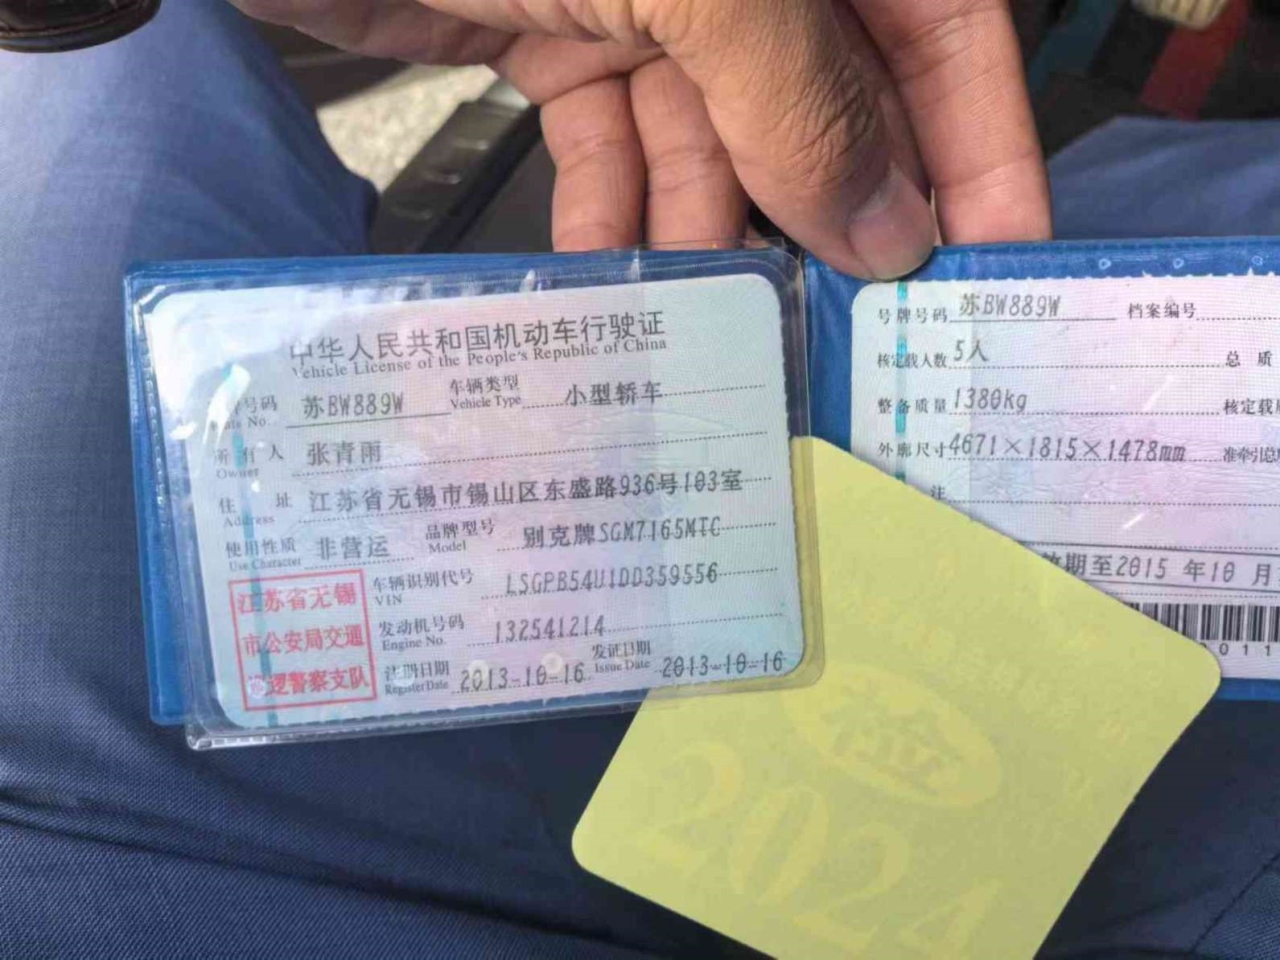 中华人民共和国机动车行驶证
Vehicle License of the People's Republic of China
号码 苏BW889W 车辆类型 小型轿车
Plate No. Vehicle Type
所有人 张青雨
Owner
住址 江苏省无锡市锡山区东盛路936号103室
Address
使用性质 非营运 品牌型号 别克牌SGM7165MTC
Use Character Model
江苏省无锡
市公安局交通
巡逻警察支队
车辆识别代号 LSGPB54U1DD359556
VIN
发动机号码 132541214
Engine No.
注册日期 2013-10-16 发证日期 2013-10-16
Register Date Issue Date
号牌号码 苏BW889W 档案编号
核定载人数 5人 总质
整备质量 1380kg 核定载
外廓尺寸 4671×1815×1478mm 准牵引总
注
期至2015年10月
011
检
2024